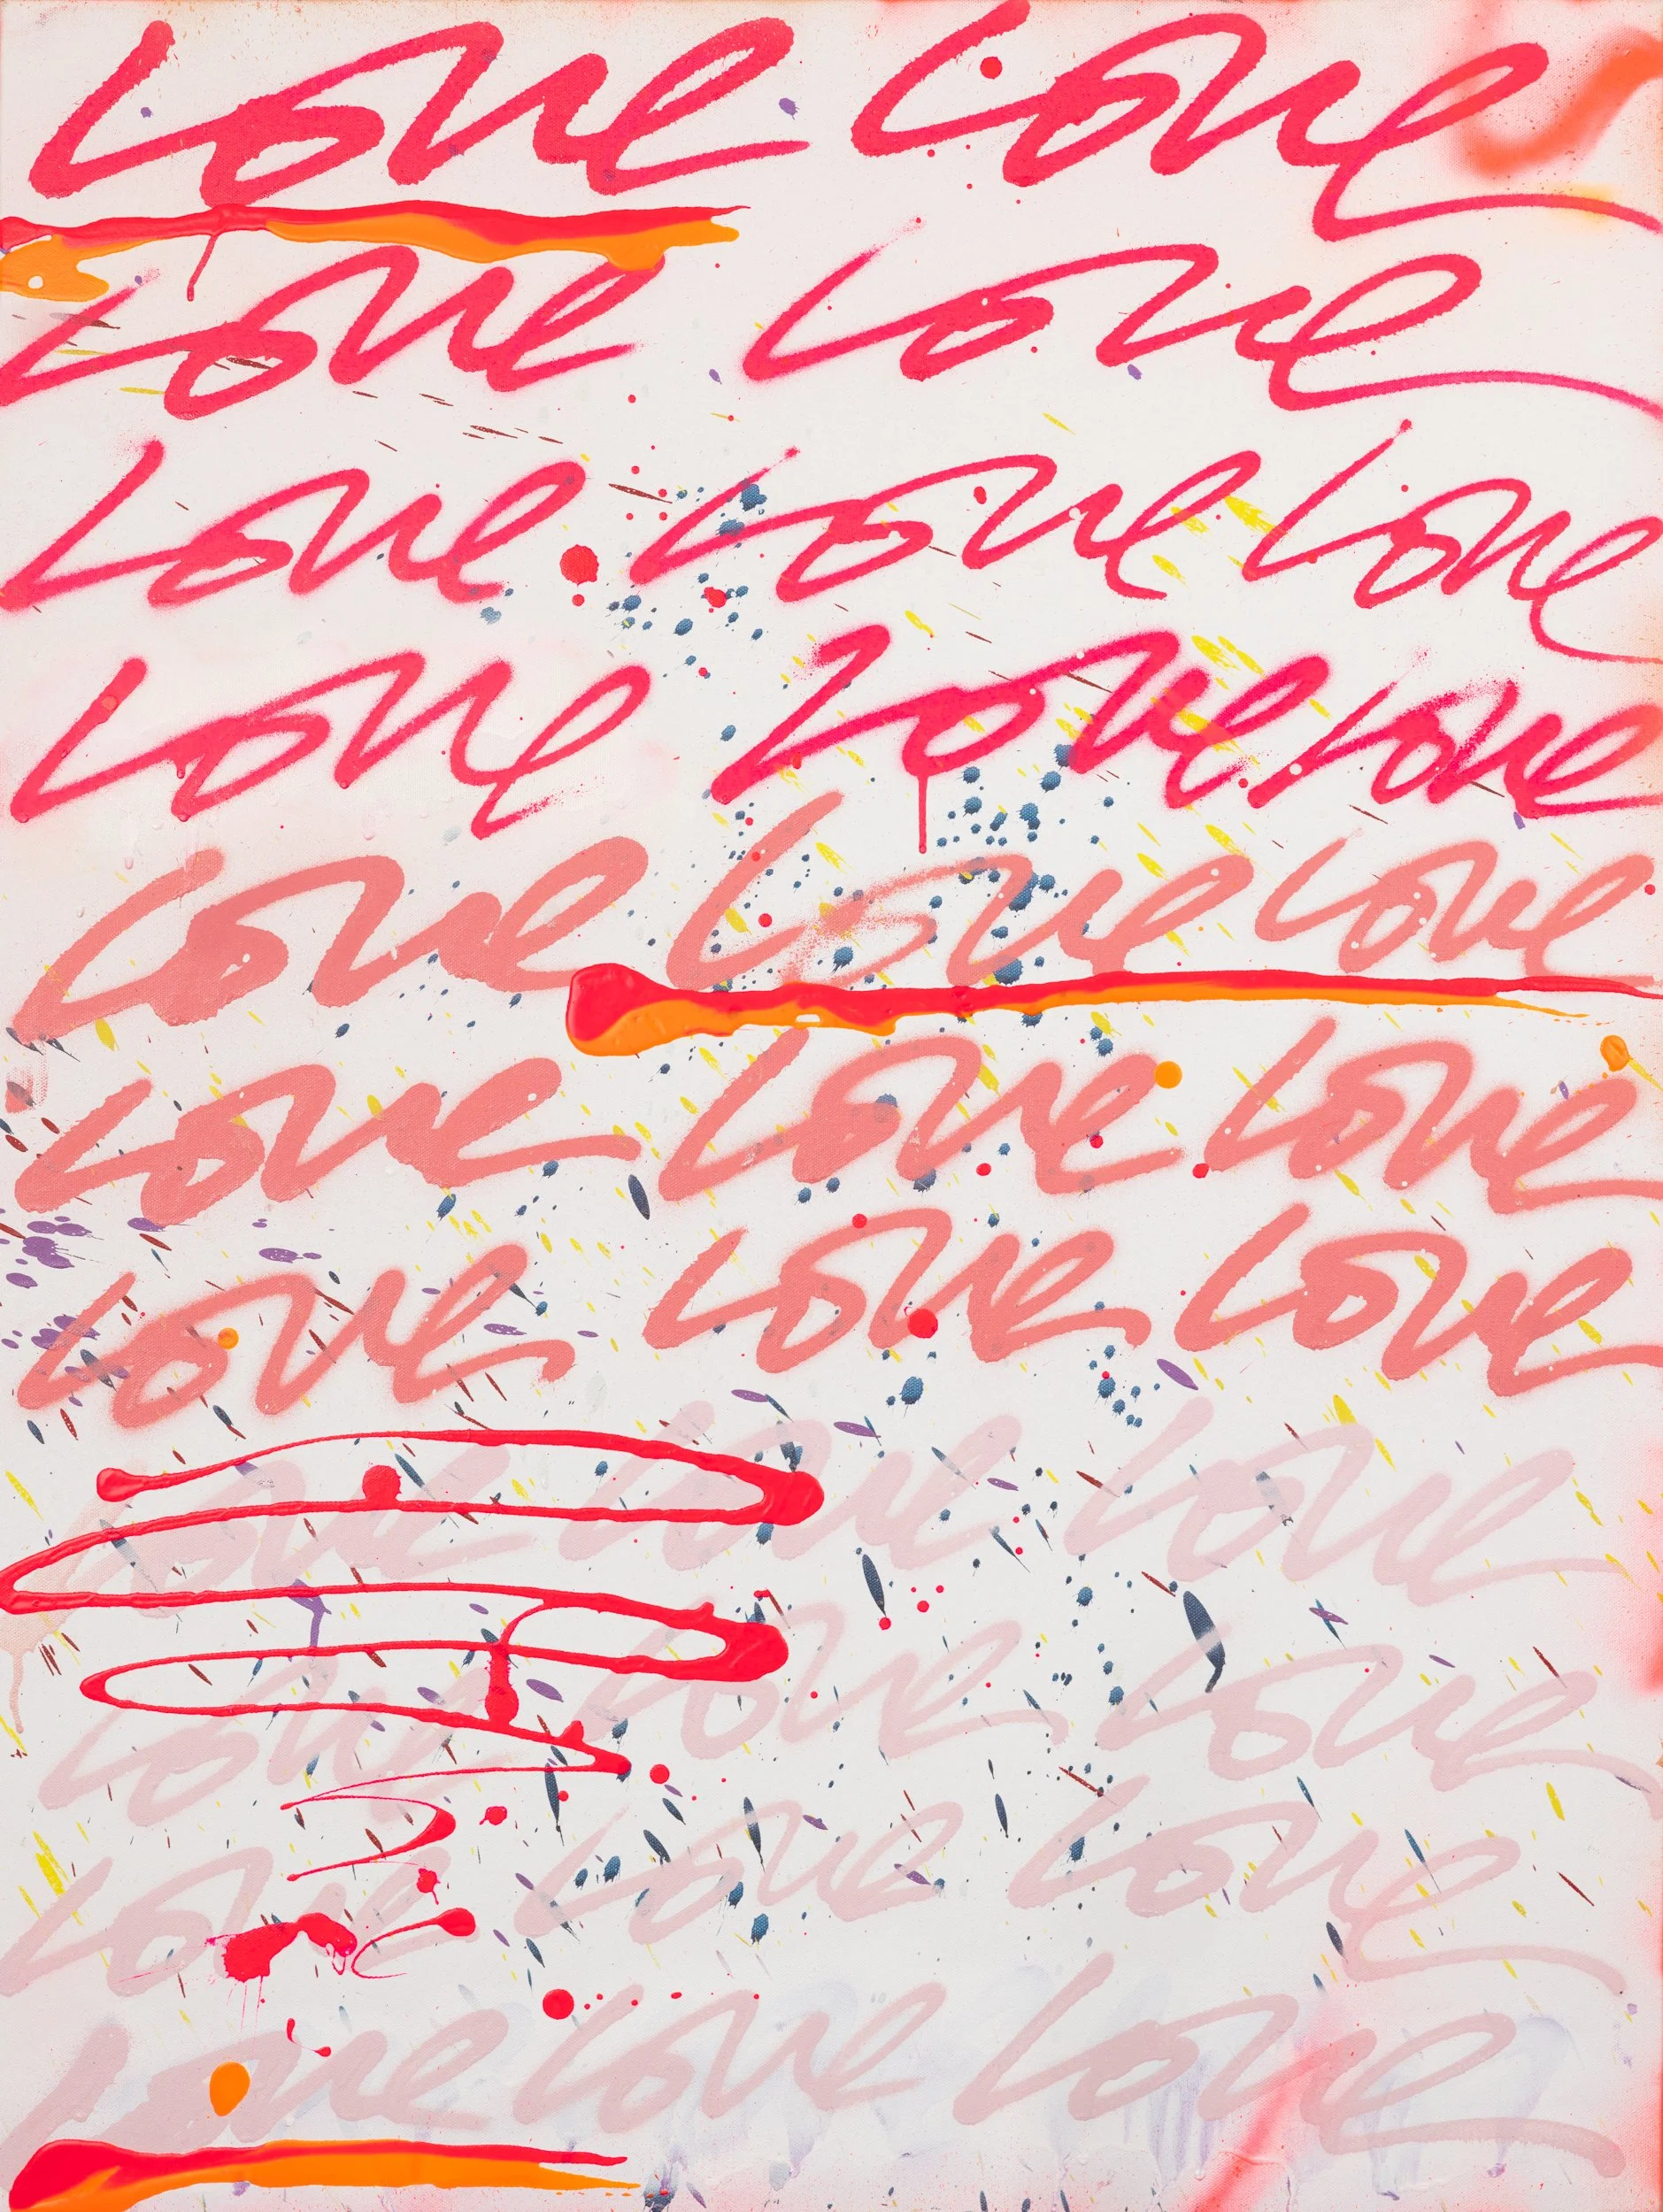 Love Love
Love Love
Love Love Love
Love Love Love
Love Love Love
Love Love Love
Love Love Love
Love Love Love
Love Love Love
Love Love Love
Love Love Love